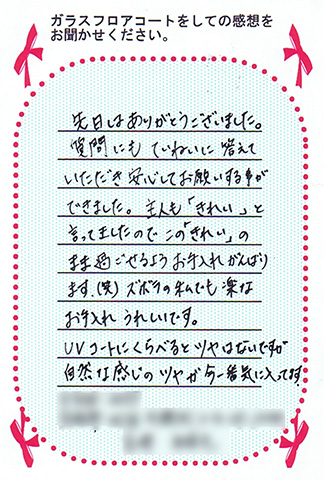 ガラスフロアコートをしての感想を
お聞かせください。
先日はありがとうございました。
質問にもていねいに答えて
いただき安心してお願いする事が
できました。主人も「きれい」と
言ってましたのでこの「きれい」の
まま過ごせるようお手入れがんばり
ます。(笑)ズボラの私でも楽な
お手入れうれしいです。
UVコートにくらべるとツヤはないですが
自然な感じのツヤが今一番気に入ってます